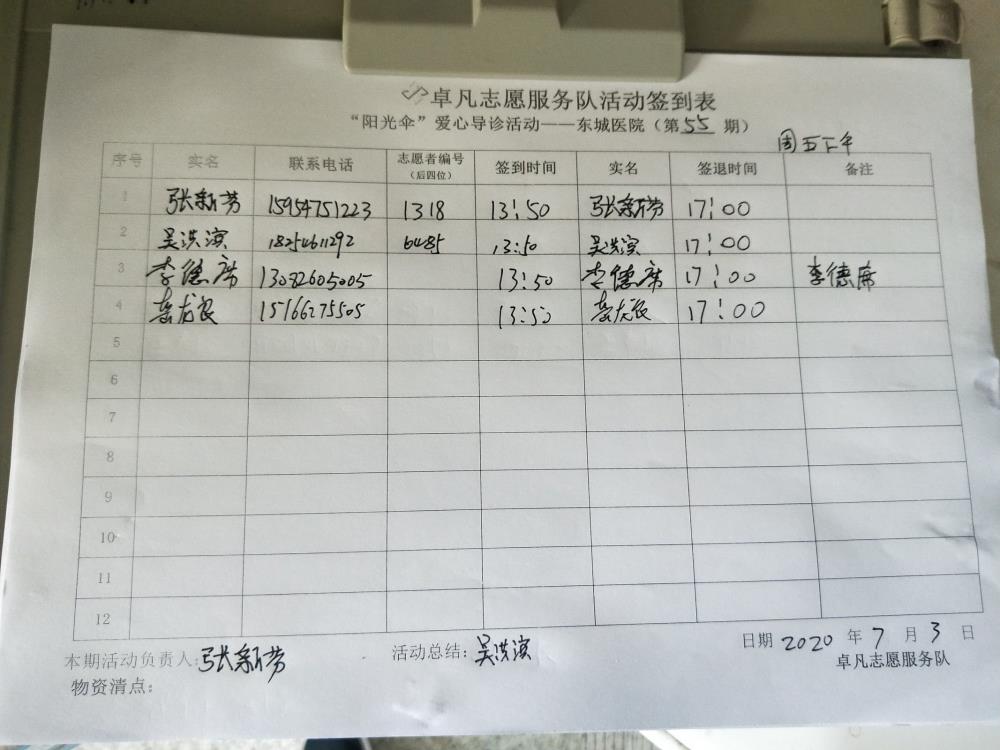 卓凡志愿服务队活动签到表
“阳光伞”爱心导诊活动——东城医院（第55期）
周五下午
序号 实名 联系电话 志愿者编号（后四位） 签到时间 实名 签退时间 备注
1 张新芳 15954751223 1318 13:50 张新芳 17:00
2 吴洪滨 18254611292 6485 13:50 吴洪滨 17:00
3 李德席 13082605005 13:50 李德席 17:00 李德席
4 15166275505 13:50 17:00
5
6
7
8
9
10
11
12
本期活动负责人:张新芳 活动总结:吴洪滨 日期 2020 年 7 月 3 日
物资清点： 卓凡志愿服务队